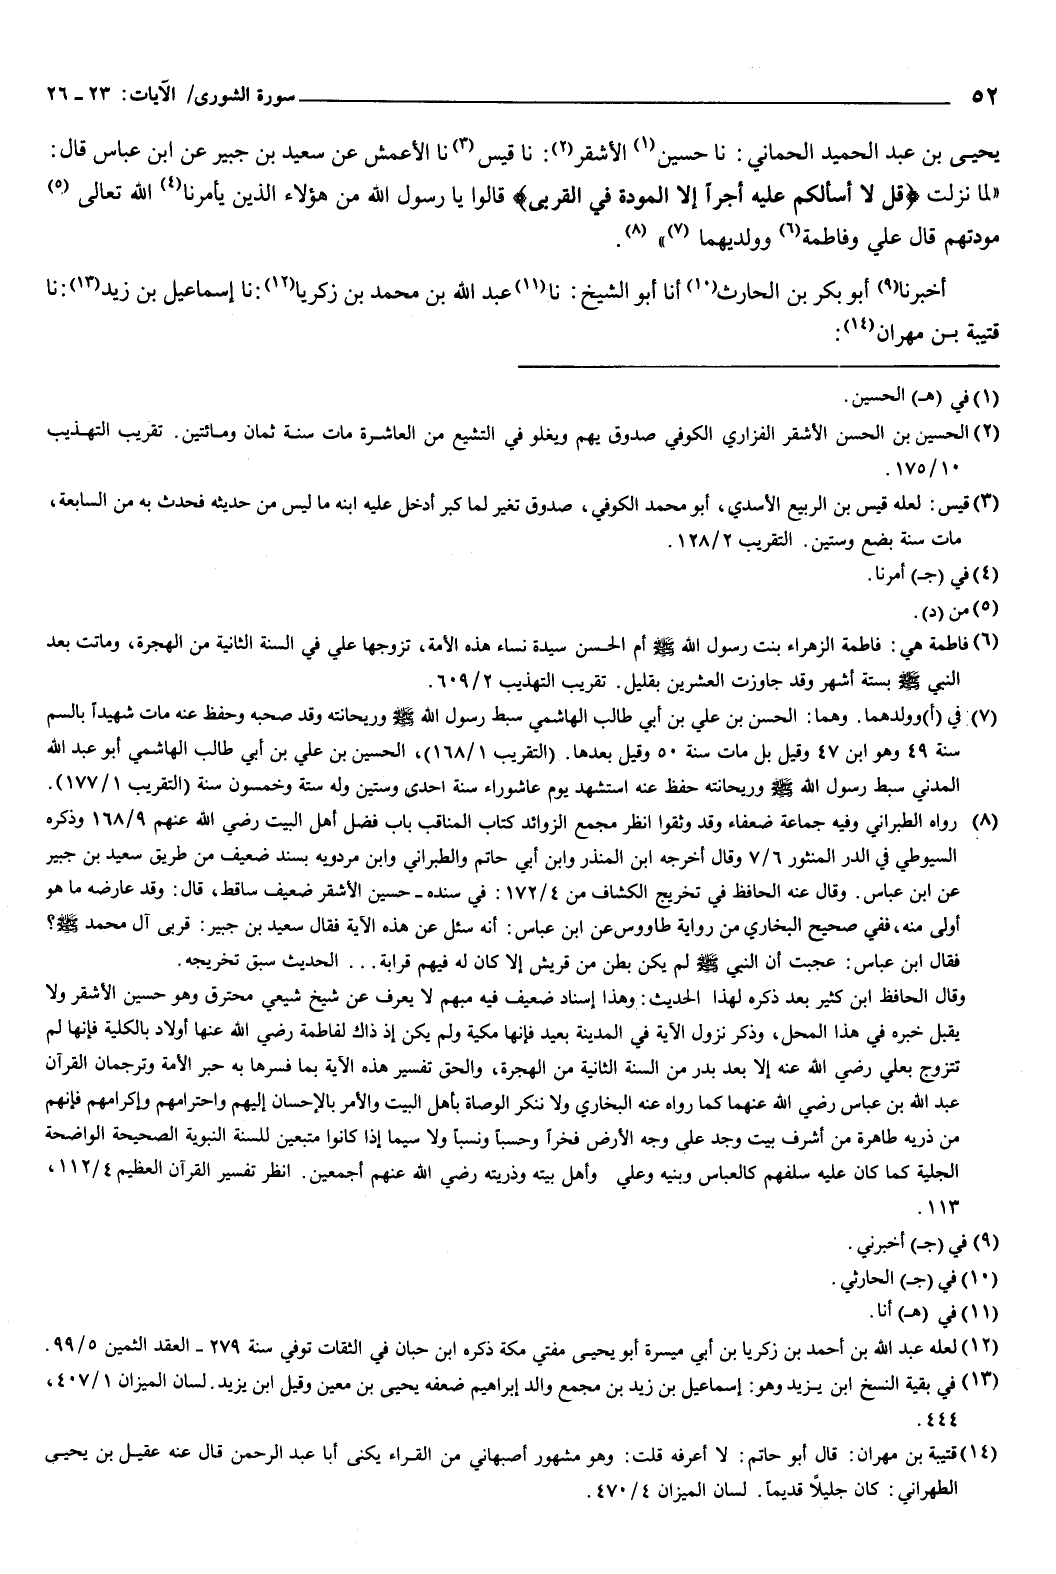 ٥٢ سورة الشورى/ الآيات: ٢٣ ـ ٢٦
يحيى بن عبد الحميد الحماني: نا حسين(١) الأشقر(٢): نا قيس(٣) نا الأعمش عن سعيد بن جبير عن ابن عباس قال:
«لما نزلت ﴿قل لا أسألكم عليه أجراً إلا المودة في القربى﴾ قالوا يا رسول الله من هؤلاء الذين يأمرنا(٤) الله تعالى (٥)
مودتهم قال علي وفاطمة(٦) وولديهما (٧)» (٨).
أخبرنا(٩) أبو بكر بن الحارث(١٠) أنا أبو الشيخ: نا(١١) عبد الله بن محمد بن زكريا(١٢): نا إسماعيل بن زيد(١٣): نا
قتيبة بـن مهران(١٤):
(١) في (هـ) الحسين.
(٢) الحسين بن الحسن الأشقر الفزاري الكوفي صدوق يهم ويغلو في التشيع من العاشرة مات سنة ثمان ومائتين. تقريب التهذيب
١٧٥/١٠.
(٣) قيس: لعله قيس بن الربيع الأسدي، أبو محمد الكوفي، صدوق تغير لما كبر أدخل عليه ابنه ما ليس من حديثه فحدث به من السابعة،
مات سنة بضع وستين. التقريب ١٢٨/٢.
(٤) في (جـ) أمرنا.
(٥) من (د).
(٦) فاطمة هي: فاطمة الزهراء بنت رسول الله ﷺ أم الحسن سيدة نساء هذه الأمة، تزوجها علي في السنة الثانية من الهجرة، وماتت بعد
النبي ﷺ بستة أشهر وقد جاوزت العشرين بقليل. تقريب التهذيب ٦٠٩/٢.
(٧) في (أ) وولدهما. وهما: الحسن بن علي بن أبي طالب الهاشمي سبط رسول الله ﷺ وريحانته وقد صحبه وحفظ عنه مات شهيداً بالسم
سنة ٤٩ وهو ابن ٤٧ وقيل بل مات سنة ٥٠ وقيل بعدها. (التقريب ١٦٨/١)، الحسين بن علي بن أبي طالب الهاشمي أبو عبد الله
المدني سبط رسول الله ﷺ وريحانته حفظ عنه استشهد يوم عاشوراء سنة احدى وستين وله ستة وخمسون سنة (التقريب ١٧٧/١).
(٨) رواه الطبراني وفيه جماعة ضعفاء وقد وثقوا انظر مجمع الزوائد كتاب المناقب باب فضل أهل البيت رضي الله عنهم ١٦٨/٩ وذكره
السيوطي في الدر المنثور ٧/٦ وقال أخرجه ابن المنذر وابن أبي حاتم والطبراني وابن مردويه بسند ضعيف من طريق سعيد بن جبير
عن ابن عباس. وقال عنه الحافظ في تخريج الكشاف من ١٧٢/٤: في سنده ـ حسين الأشقر ضعيف ساقط، قال: وقد عارضه ما هو
أولى منه، ففي صحيح البخاري من رواية طاووس عن ابن عباس: أنه سئل عن هذه الآية فقال سعيد بن جبير: قربى آل محمد ﷺ؟
فقال ابن عباس: عجبت أن النبي ﷺ لم يكن بطن من قريش إلا كان له فيهم قرابة... الحديث سبق تخريجه.
وقال الحافظ ابن كثير بعد ذكره لهذا الحديث: وهذا إسناد ضعيف فيه مبهم لا يعرف عن شيخ شيعي محترق وهو حسين الأشقر ولا
يقبل خبره في هذا المحل، وذكر نزول الآية في المدينة بعيد فإنها مكية ولم يكن إذ ذاك لفاطمة رضي الله عنها أولاد بالكلية فإنها لم
تتزوج بعلي رضي الله عنه إلا بعد بدر من السنة الثانية من الهجرة، والحق تفسير هذه الآية بما فسرها به حبر الأمة وترجمان القرآن
عبد الله بن عباس رضي الله عنهما كما رواه عنه البخاري ولا ننكر الوصاة بأهل البيت والأمر بالإحسان إليهم واحترامهم وإكرامهم فإنهم
من ذريه طاهرة من أشرف بيت وجد على وجه الأرض فخراً وحسباً ونسباً ولا سيما إذا كانوا متبعين للسنة النبوية الصحيحة الواضحة
الجلية كما كان عليه سلفهم كالعباس وبنيه وعلي وأهل بيته وذريته رضي الله عنهم أجمعين. انظر تفسير القرآن العظيم ١١٢/٤،
١١٣.
(٩) في (جـ) أخبرني.
(١٠) في (جـ) الحارثي.
(١١) في (هـ) أنا.
(١٢) لعله عبد الله بن أحمد بن زكريا بن أبي ميسرة أبو يحيى مفتي مكة ذكره ابن حبان في الثقات توفي سنة ٢٧٩ ـ العقد الثمين ٩٩/٥.
(١٣) في بقية النسخ ابن يـزيد وهو: إسماعيل بن زيد بن مجمع والد إبراهيم ضعفه يحيى بن معين وقيل ابن يزيد. لسان الميزان ٤٠٧/١،
٤٤٤.
(١٤) قتيبة بن مهران: قال أبو حاتم: لا أعرفه قلت: وهو مشهور أصبهاني من القراء يكنى أبا عبد الرحمن قال عنه عقيل بن يحيى
الطهراني: كان جليلًا قديماً. لسان الميزان ٤٧٠/٤.